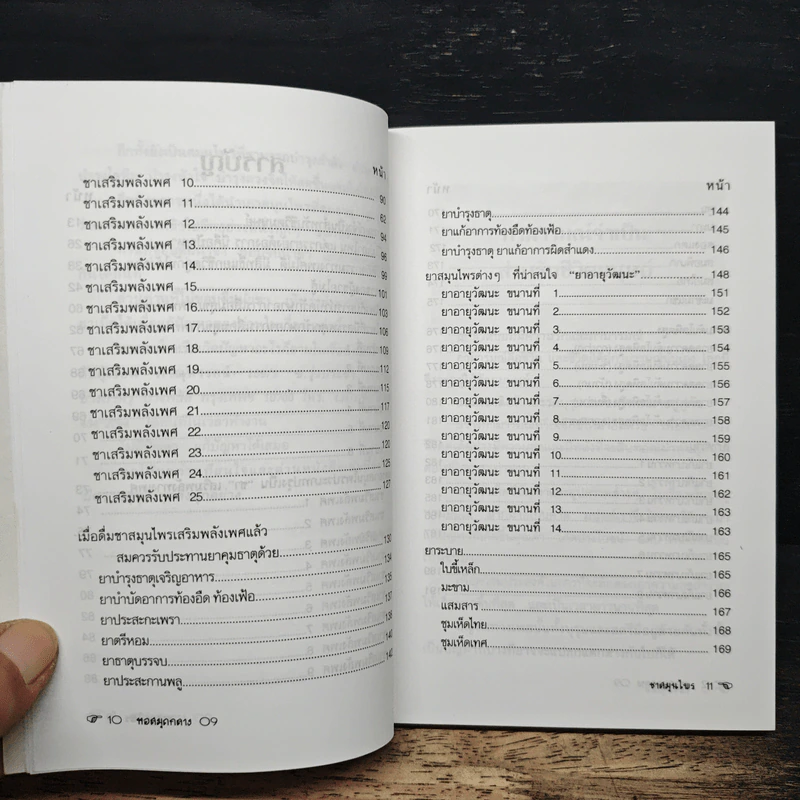 หน้า
ชาเสริมพลังเพศ 10 90
ชาเสริมพลังเพศ 11 62
ชาเสริมพลังเพศ 12 94
ชาเสริมพลังเพศ 13 96
ชาเสริมพลังเพศ 14 99
ชาเสริมพลังเพศ 15 101
ชาเสริมพลังเพศ 16 103
ชาเสริมพลังเพศ 17 106
ชาเสริมพลังเพศ 18 109
ชาเสริมพลังเพศ 19 112
ชาเสริมพลังเพศ 20 115
ชาเสริมพลังเพศ 21 117
ชาเสริมพลังเพศ 22 120
ชาเสริมพลังเพศ 23 120
ชาเสริมพลังเพศ 24 125
ชาเสริมพลังเพศ 25 127
เมื่อดื่มชาสมุนไพรเสริมพลังเพศแล้ว
สมควรรับประทานยาคุมธาตุด้วย 130
ยาบำรุงธาตุเจริญอาหาร 134
ยาบำบัดอาการท้องอืด ท้องเฟ้อ 135
ยาประสะกะเพรา 137
ยาตรีหอม 139
ยาธาตุบรรจบ
ยาประสะกานพลู
10
09
หน้า
ยาบำรุงธาตุ 144
ยาแก้อาการท้องอืดท้องเฟ้อ 145
ยาบำรุงธาตุ ยาแก้อาการผิดสำแดง 146
ยาสมุนไพรต่างๆ ที่น่าสนใจ "ยาอายุวัฒนะ" 148
ยาอายุวัฒนะ ขนานที่ 1 151
ยาอายุวัฒนะ ขนานที่ 2 152
ยาอายุวัฒนะ ขนานที่ 3 153
ยาอายุวัฒนะ ขนานที่ 4 154
ยาอายุวัฒนะ ขนานที่ 5 155
ยาอายุวัฒนะ ขนานที่ 6 156
ยาอายุวัฒนะ ขนานที่ 7 157
ยาอายุวัฒนะ ขนานที่ 8 158
ยาอายุวัฒนะ ขนานที่ 9 159
ยาอายุวัฒนะ ขนานที่ 10 160
ยาอายุวัฒนะ ขนานที่ 11 161
ยาอายุวัฒนะ ขนานที่ 12 162
ยาอายุวัฒนะ ขนานที่ 13 163
ยาอายุวัฒนะ ขนานที่ 14 163
ยาระบาย 165
ใบขี้เหล็ก 165
มะขาม 166
แสมสาร 167
ชุมเห็ดไทย 168
ชุมเห็ดเทศ 169
ชาสมุนไพร 11